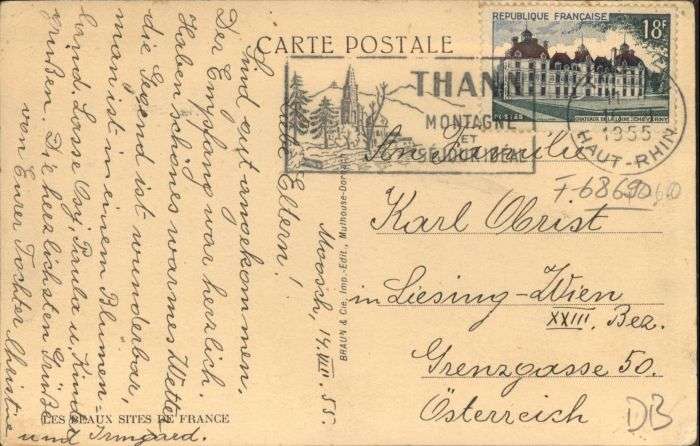 CARTE POSTALE
REPUBLIQUE FRANÇAISE
18F
POSTES
CHATEAUX DE LA LOIRE : CHEVERNY
THANN
MONTAGNE
ET
SEJOUR IDEAL
1955
HAUT-RHIN
Moosch, 14. VIII. 55.
Liebe Eltern!
Sind gut angekommen.
Der Empfang war herzlich.
Haben schönes warmes Wetter
die Gegend ist wunderbar,
man ist in einem Blumen-
land. Lasse Ossi, Paula u. Kind
grüßen. Die herzlichsten Grüße
von Eurer Tochter Christie
und Irmgard.
LES BEAUX SITES DE FRANCE
BRAUN & Cie, Imp.-Edit., Mulhouse-Dornach
An Familie
F-68690
Karl Obrist
in Liesing-Wien
XXIII. Bez.
Grenzgasse 50.
Österreich
DB